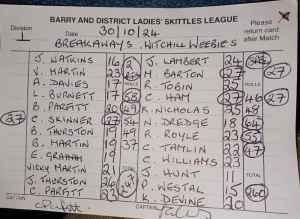 BARRY AND DISTRICT LADIES' SKITTLES LEAGUE
Division 1 Date 30/10/24 Please return card after Match
BREAKAWAYS. WITCHILL WEEBIES
J. WATKINS 16 J. LAMBERT 24
V. MARTIN 23 M BARTON 27 27
A. DAVIES 17 R. TOBIN 25
L. BURNETT 17 58 C HAM 27 46 27
B. PARFITT 20 49 R. NICHOLAS 26 45
27 C. SKINNER 27 54 N. DREDGE 18 64
B. THURSTON 19 49 R. ROYLE 23 55
B. MARTIN 19 37 C. TAMLIN 22 47
E. GRAHAM 19 C. WILLIAMS 23
VICKY MARTIN 21 J. HUNT 11 TOTAL
J. THURSTON 26 P. WESTAL 15 260
C. PARFITT 23 K. DEVINE 20
CAPTAIN CAPTAIN